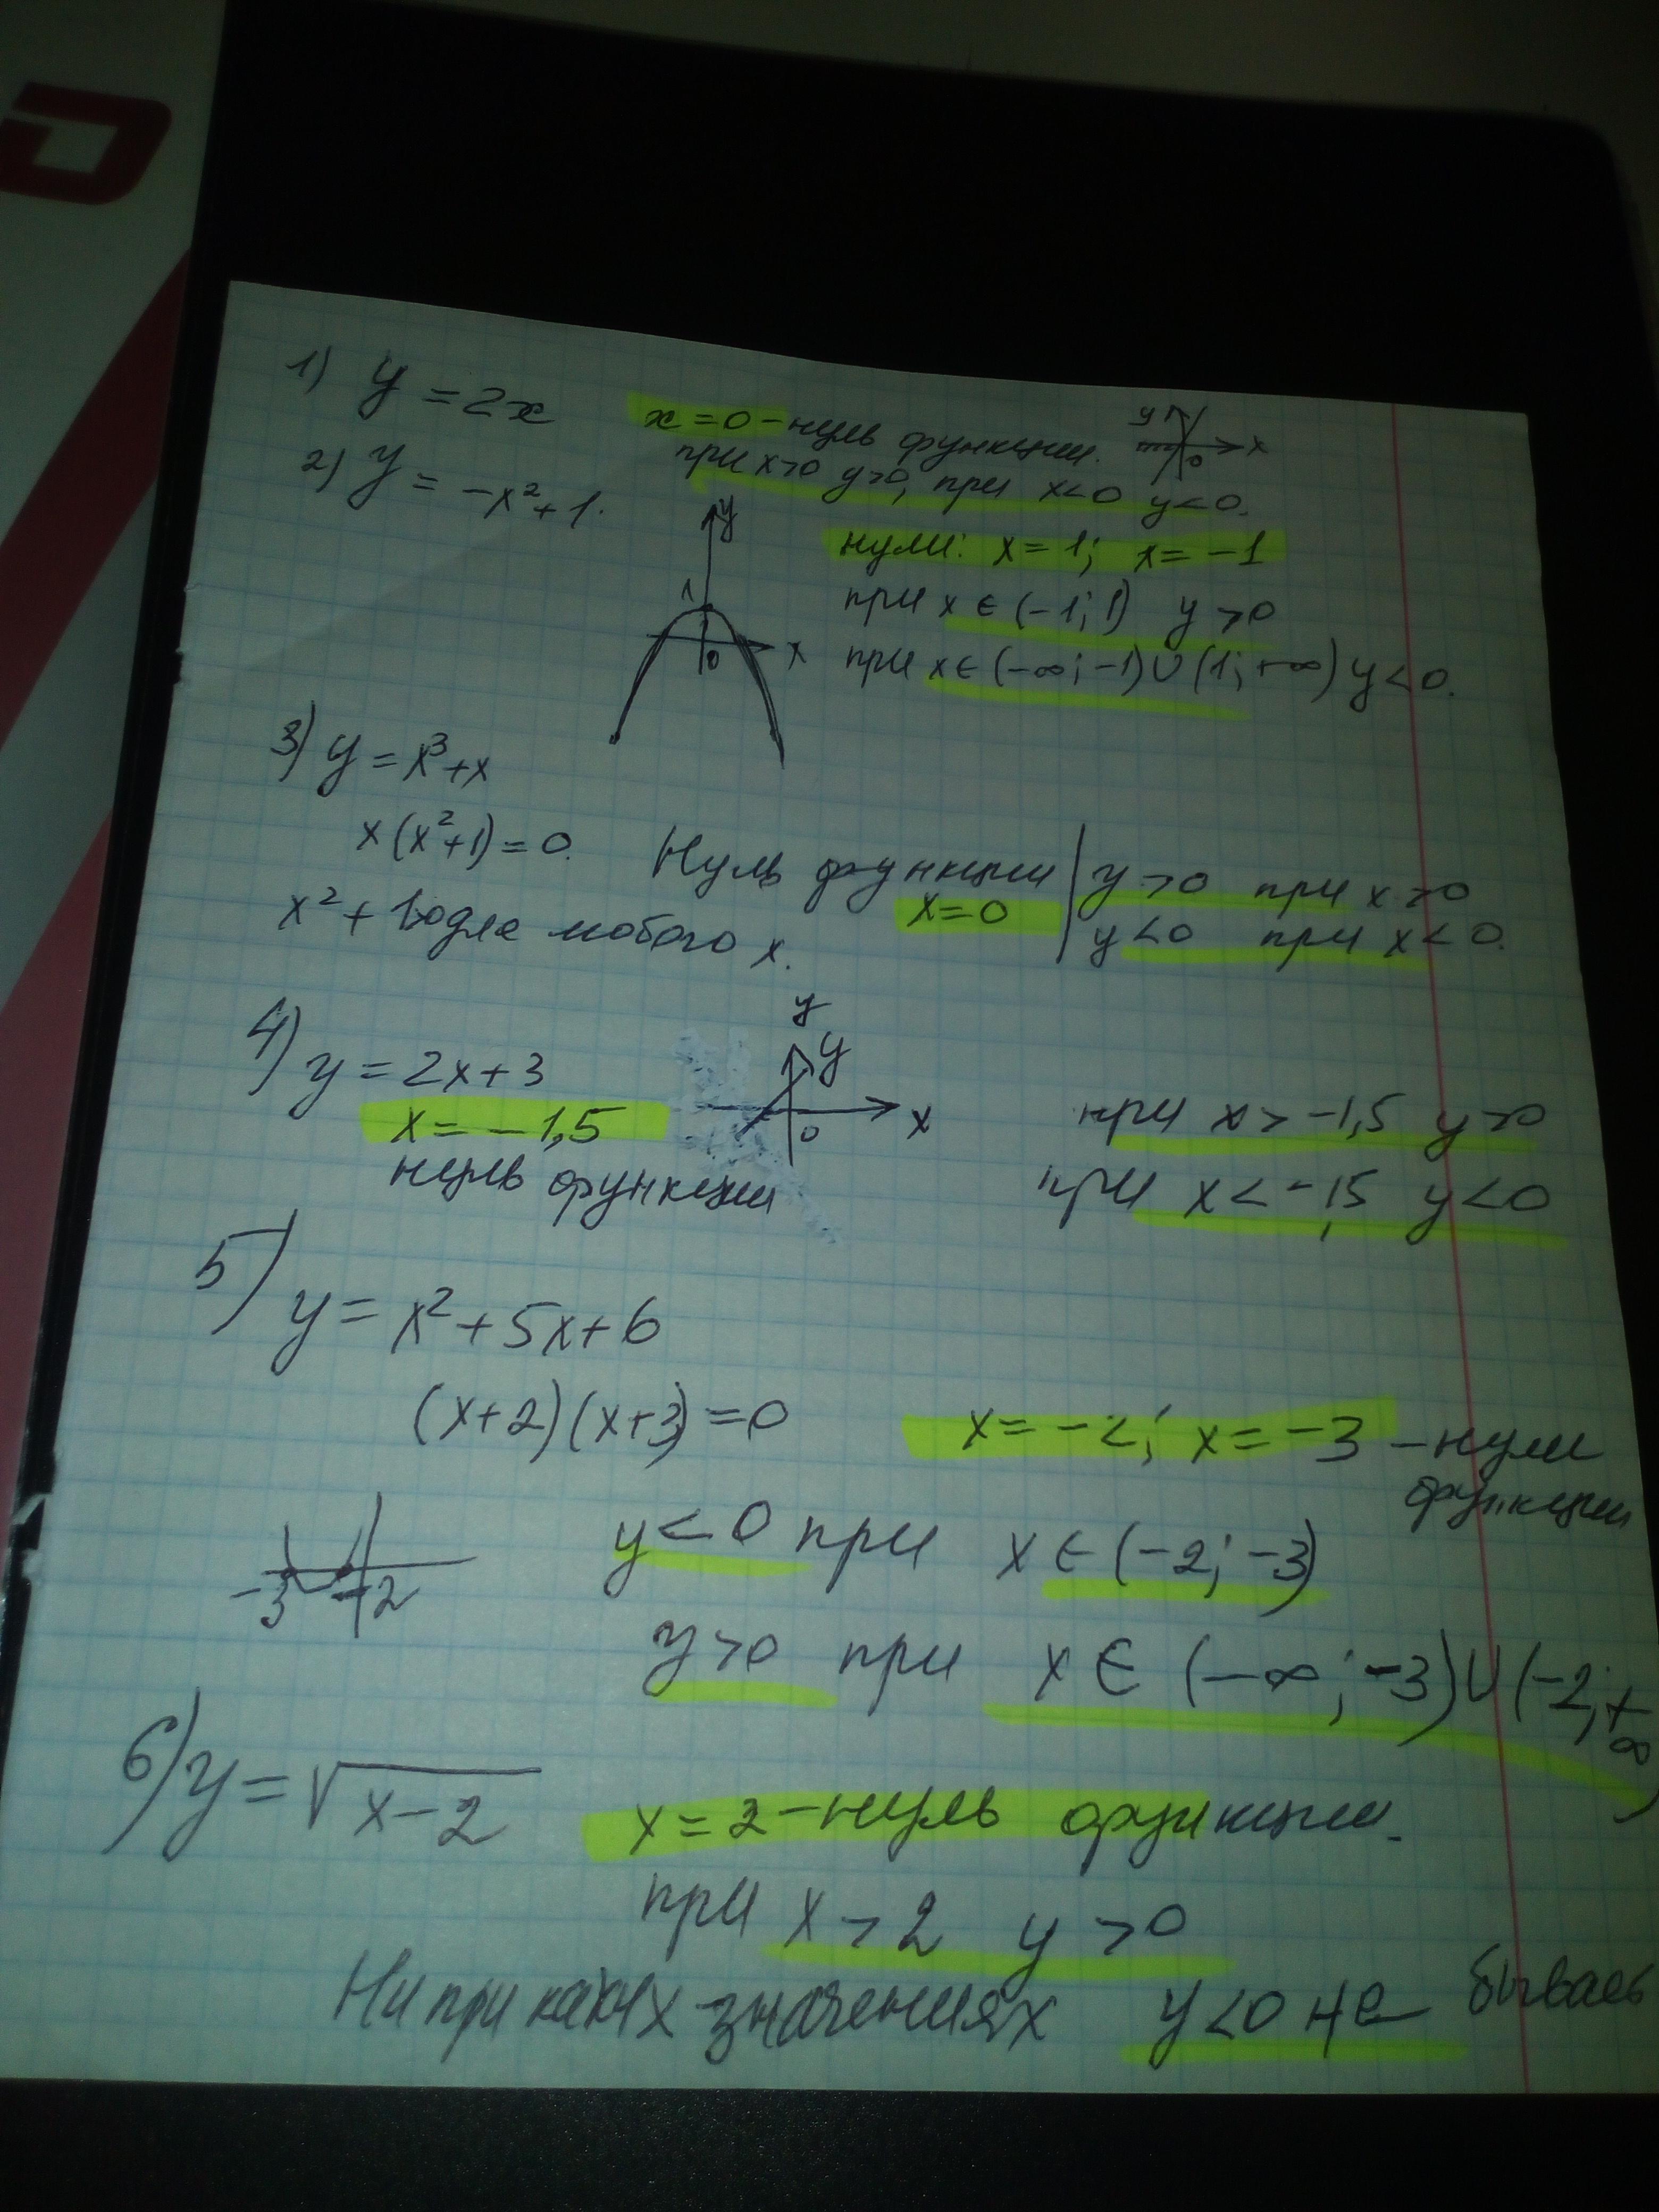 1) y = 2x x = 0 - нуль функции. y x 0
при x>0 y>0, при x<0 y<0.
2) y = -x² + 1.
y 1 0 x
нули: x = 1; x = -1
при x ∈ (-1; 1) y > 0
при x ∈ (-∞; -1) ∪ (1; +∞) y < 0.
3) y = x³ + x
x(x² + 1) = 0.
x² + 1>0 для любого x.
Нуль функции
x = 0
y > 0 при x > 0
y < 0 при x < 0.
4) y = 2x + 3
y
y
0 x
x = -1,5
нуль функции
при x > -1,5 y > 0
при x < -1,5 y < 0
5) y = x² + 5x + 6
(x + 2)(x + 3) = 0 x = -2; x = -3 - нули
функции
-3 -2
y < 0 при x ∈ (-2; -3)
y > 0 при x ∈ (-∞; -3) ∪ (-2; +∞)
6) y = √x - 2 x = 2 - нуль функции.
при x > 2 y > 0
Ни при каких значениях y < 0 не бывает